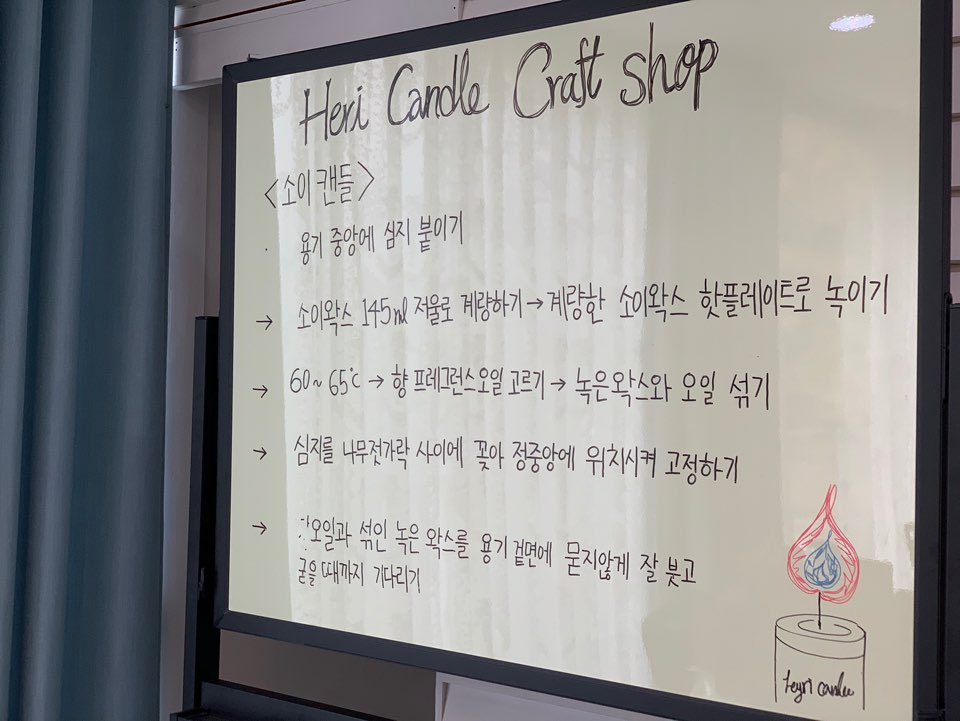 Heri Candle Craft shop
<소이캔들>
· 용기 중앙에 심지 붙이기
→ 소이왁스 145ml 저울로 계량하기 → 계량한 소이왁스 핫플레이트로 녹이기
→ 60~65℃ → 향 프레그런스오일 고르기 → 녹은왁스와 오일 섞기
→ 심지를 나무젓가락 사이에 꽂아 정중앙에 위치시켜 고정하기
→ 오일과 섞인 녹은 왁스를 용기 겉면에 묻지않게 잘 붓고
굳을 때까지 기다리기
candle